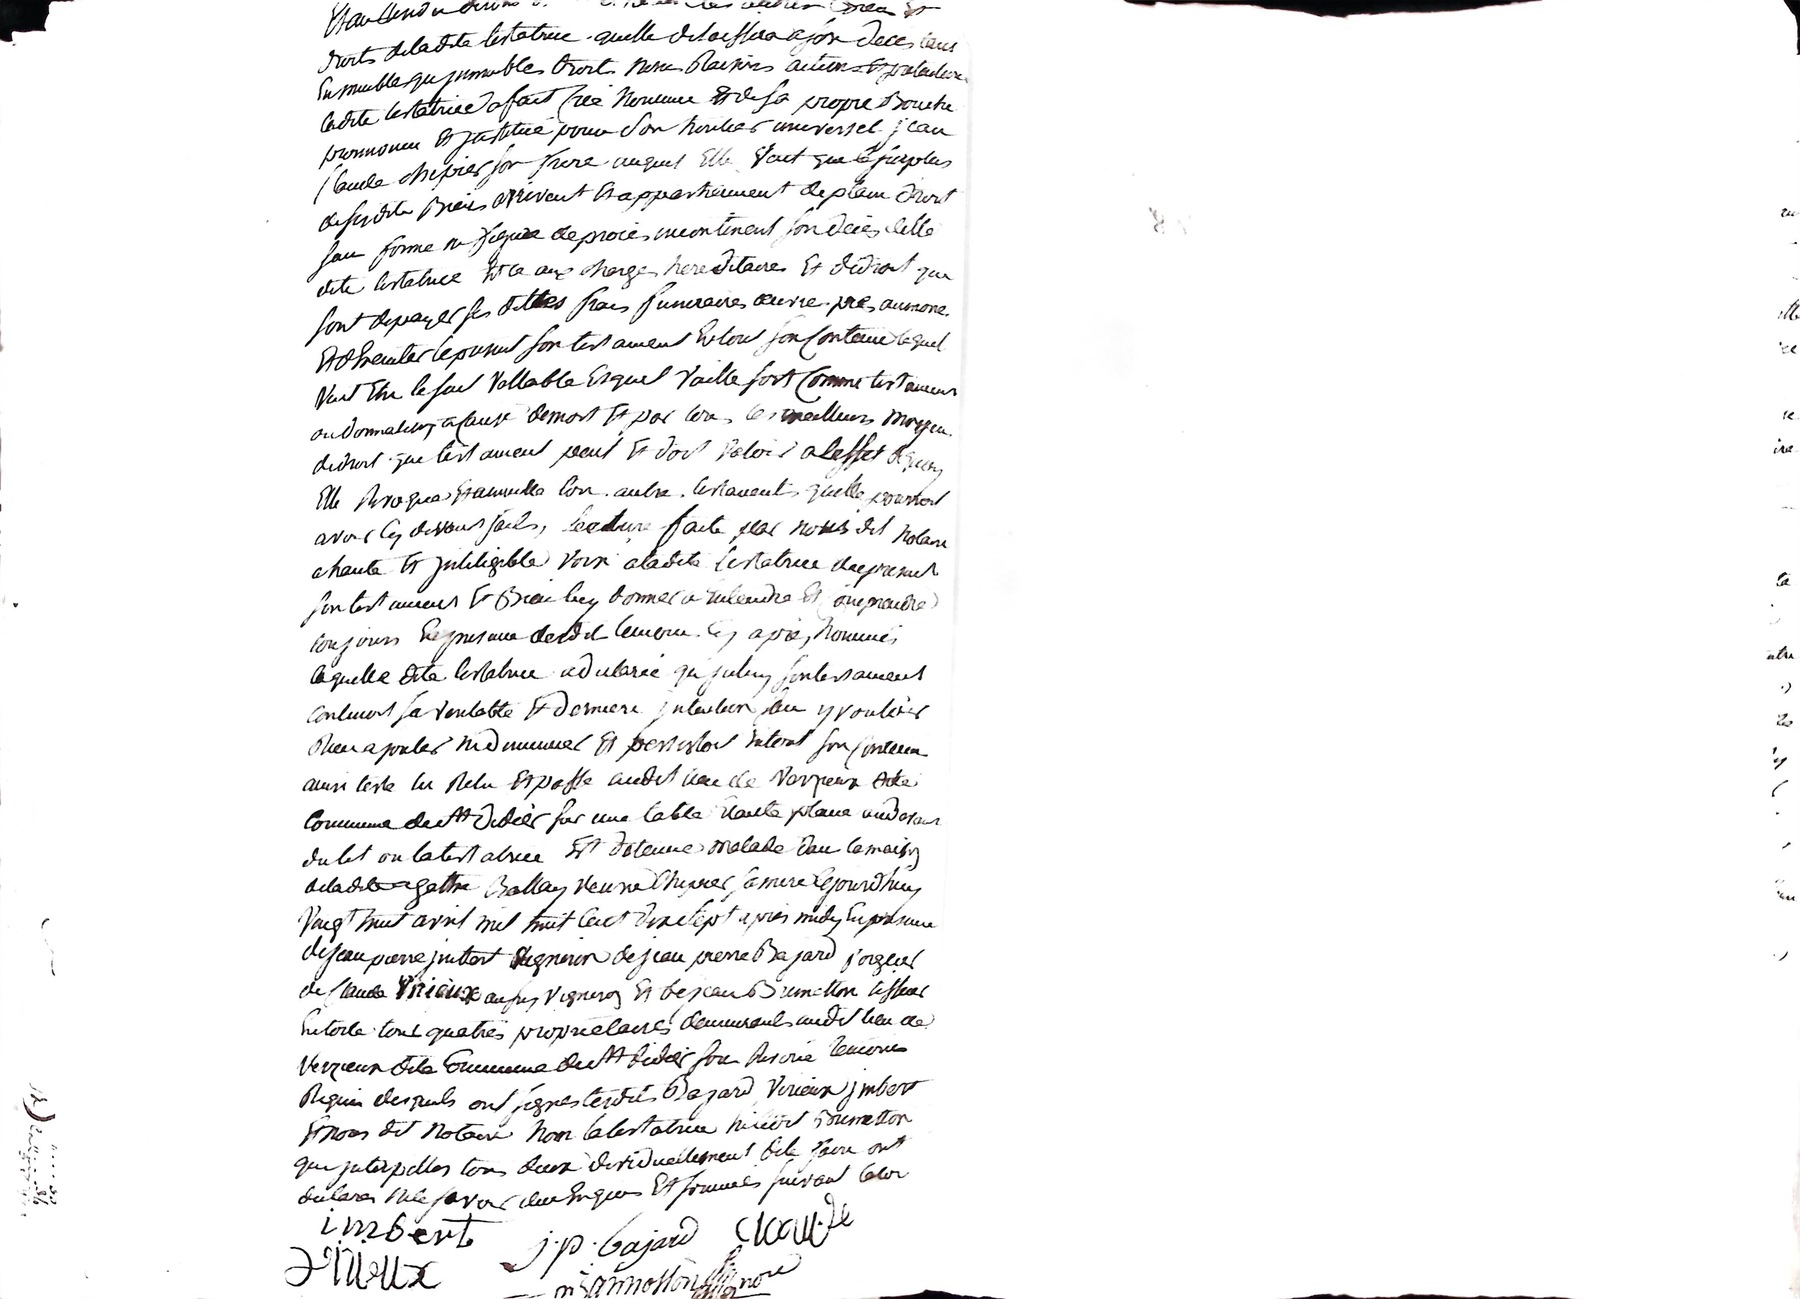 droits de ladite testatrice quelle delaissera a son deces tant
En meubles qu'jmmeubles droits noms Raisons actions Et pretentions
ladite testatrice a fait Créé nommé Et de sa propre Bouche
prononcé Et jnstitué pour son heritier universel jean
Claude chipier son frere auquel Elle Veut que le surplus
de sesdits Biens arrivent Et appartiennent de plein droit
sans forme ni figure de procès incontinent son décès d'elle
dite testatrice Et ce aux charges hereditaires Et de droit qui
sont de payer ses dittes frais funeraires œuvres pies aumone
Et d'Executer le present son testament En tout son Contenu lequel
Veut Etre le seul Vallable Et quel Vaille soit Comme testament
ou donnation a Cause de mort Et par tous les meilleurs moyen
de droit que testament peut Et doit Valoir a l'effet de quoy
Elle Revoque Et annulle tous autres testaments quelle pourroit
avoir Cy devant faits, lecture faite par nous dit Notaire
a haute Et jnteligible Voix a ladite testatrice du present
son testament Et Bien luy donner a Entendre Et Comprendre
toujours En presence desdit temoins Cy après nommés
laquelle dite testatrice a déclaré qu'jceluy son testament
Contient sa Veritable Et derniere jntention sans y vouloir
Rien ajouter ni diminuer Et persister En tout son Contenu
ainsi testé lu Relu Et passé audit lieu de Verrieux dite
Commune de St Didier sur une table Haute placée au devant
du lit ou la testatrice Est detenue malade dans la maison
de ladite agathe Ballay Veuve Chipier sa mere Cejourd'huy
Vingt huit avril mil huit Cent dix sept après midy En presence
de jean pierre jmbert Vigneron de jean pierre Bajard
de Claude Virieux aussy Vigneron Et de jean Brunetton tisseur
En toile tous quatres propriétaires demeurants audit lieu de
Verrieux dite Commune de St Didier son Revoir temoins
Requis desquels ont signés lesdits Bajard, Virieux jmbert
Et nous dit Notaire Non la testatrice ni ledit Brunetton
qui jnterpellés tous deux de le faire ont
déclarés ne le savoir Enquis Et sommés suivant la loi
imbert
j.p. bajard Claude
Virieux